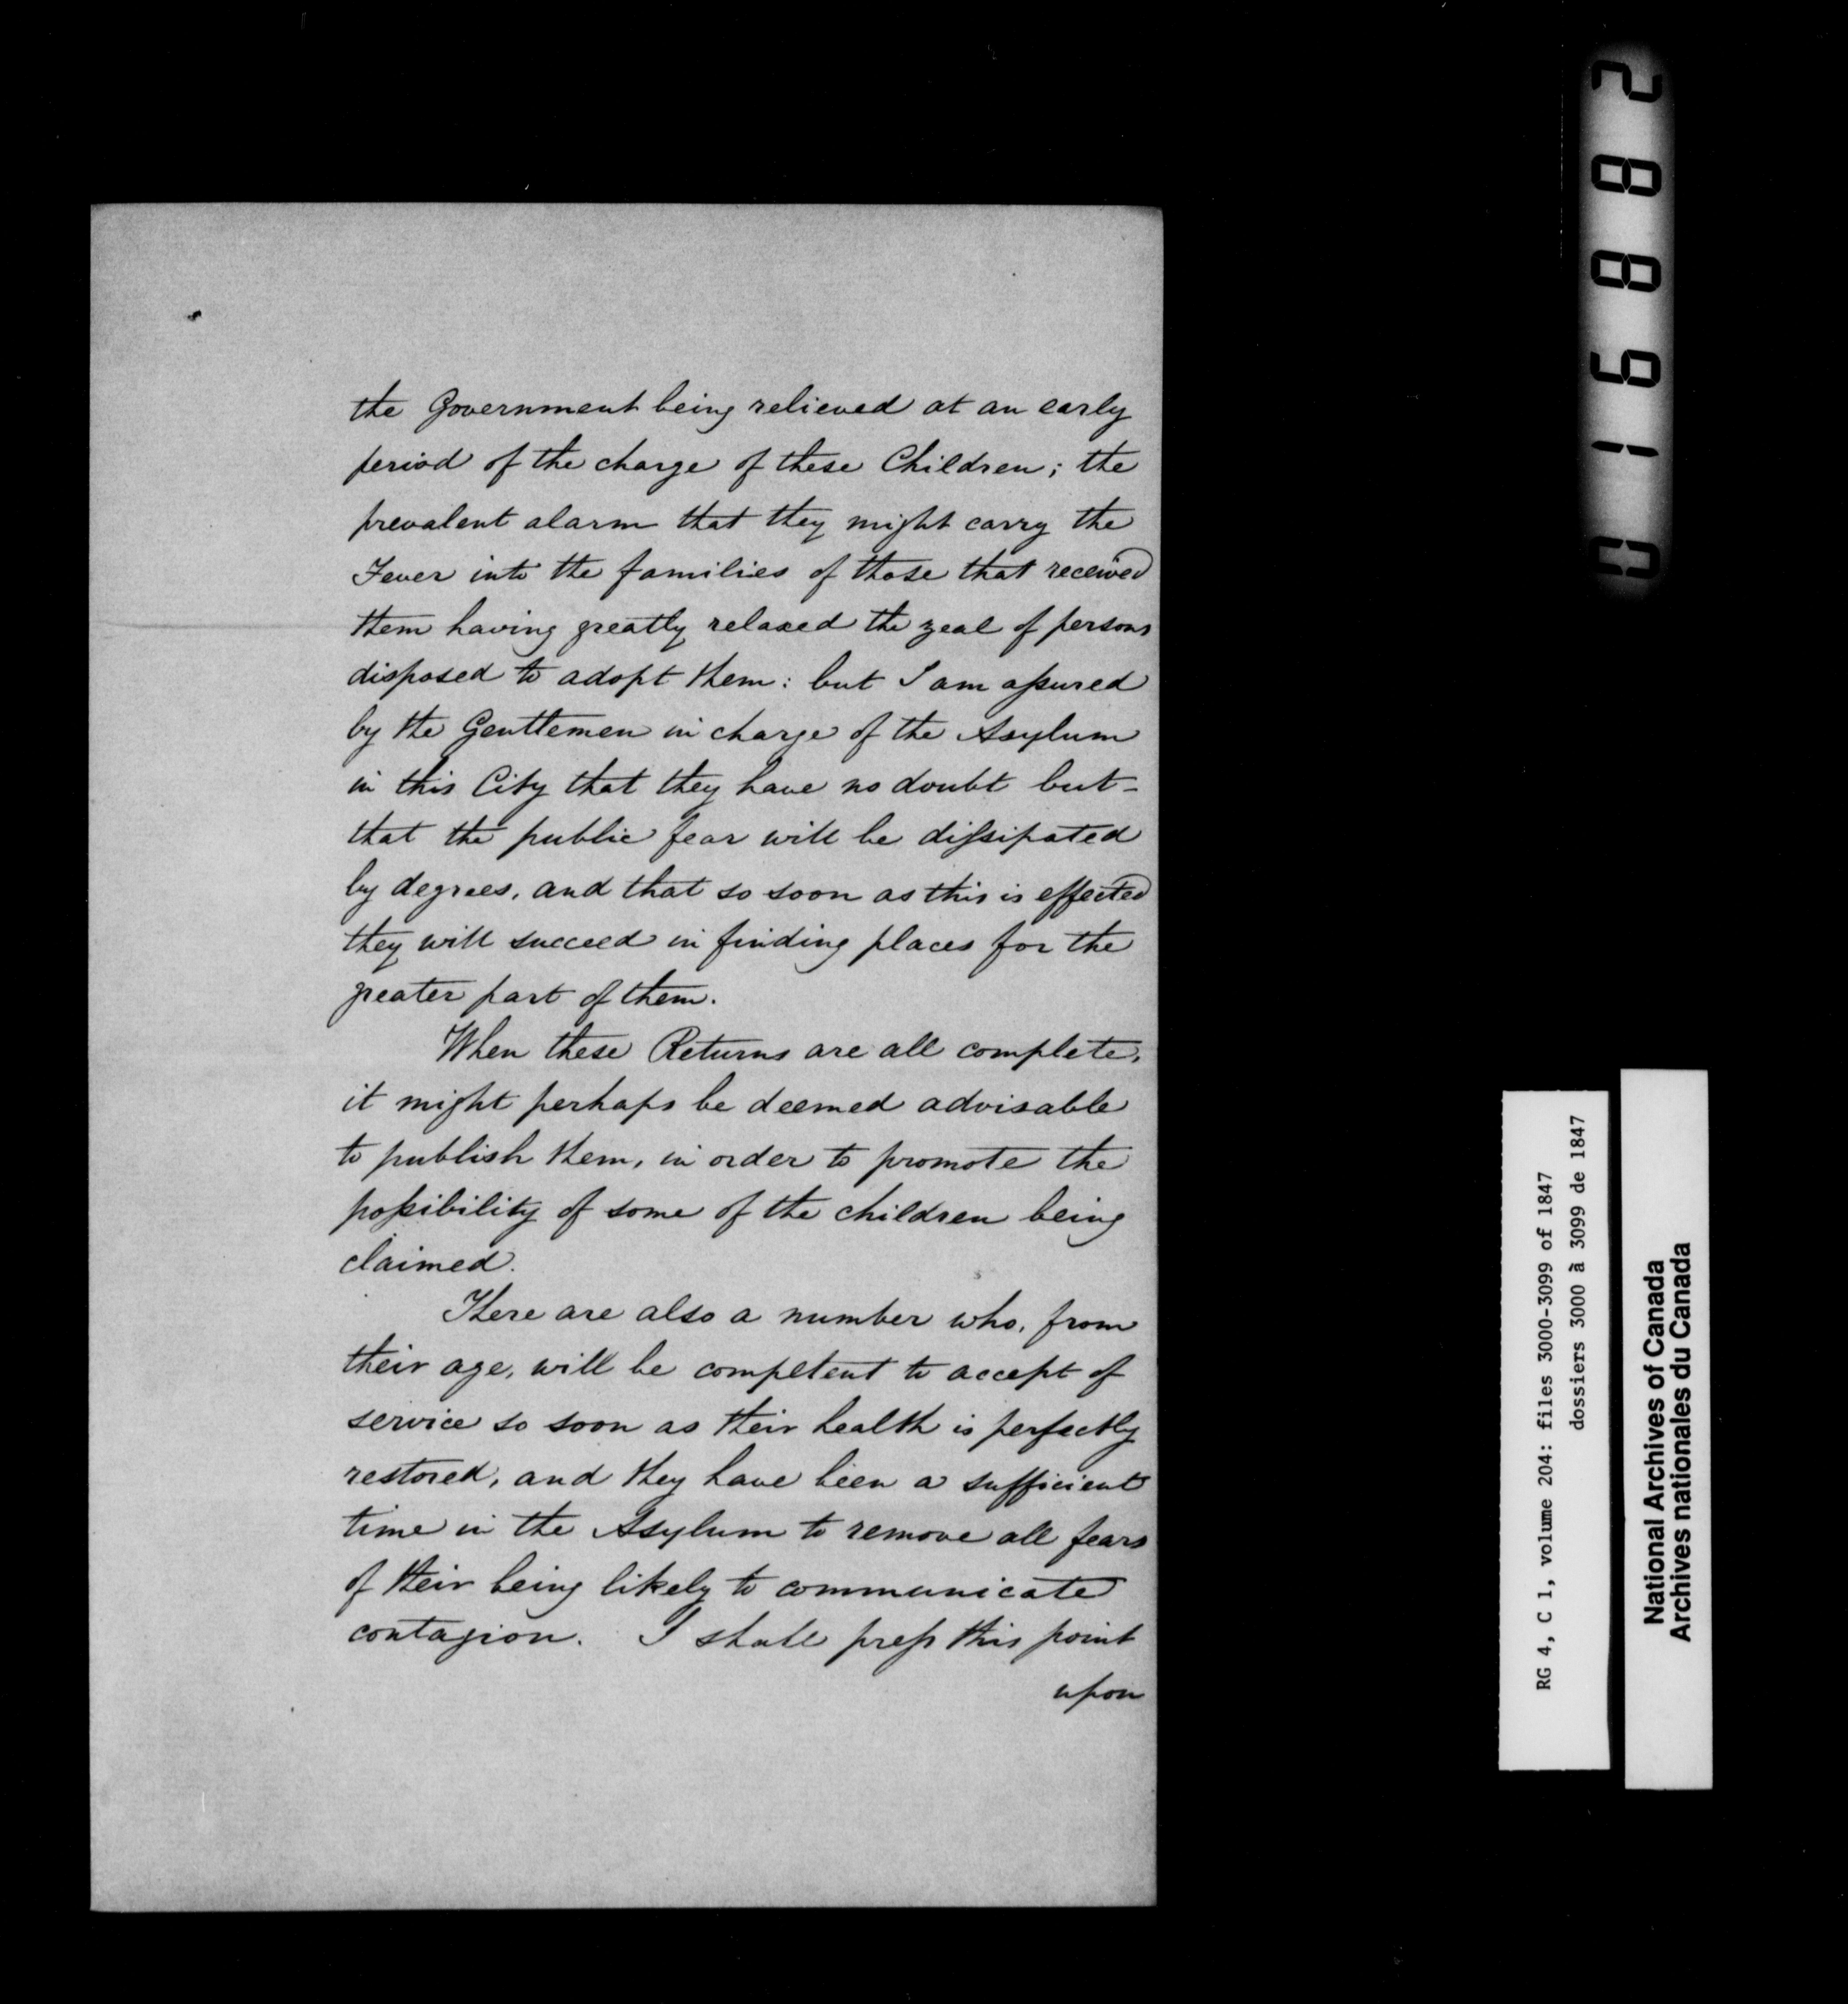 the Government being relieved at an early
period of the charge of these Children; the
prevalent alarm that they might carry the
Fever into the families of those that received
them having greatly relaxed the zeal of persons
disposed to adopt them: but I am assured
by the Gentlemen in charge of the Asylum
in this City that they have no doubt but-
that the public fear will be dissipated
by degrees, and that so soon as this is effected
they will succeed in finding places for the
greater part of them.
When these Returns are all complete,
it might perhaps be deemed advisable
to publish them, in order to promote the
possibility of some of the children being
claimed.
There are also a number who, from
their age, will be competent to accept of
service so soon as their health is perfectly
restored, and they have been a sufficient
time in the Asylum to remove all fears
of their being likely to communicate
contagion. I shall press this point
upon
016882
RG 4, C 1, volume 204: files 3000-3099 of 1847
dossiers 3000 à 3099 de 1847
National Archives of Canada
Archives nationales du Canada